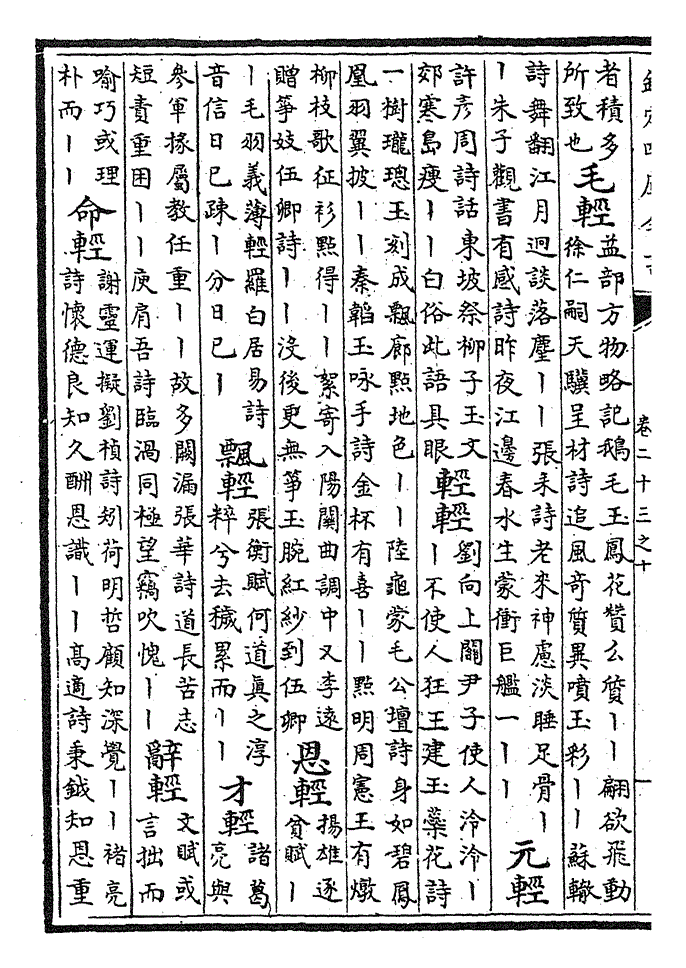 欽定四庫全書
卷二十三之十
者積多
所致也
毛輕
益部方物略記鵝毛玉鳳花贊么質丨丨翩欲飛動
徐仁嗣天驥呈材詩追風奇質異噴玉彩丨丨蘇轍
詩舞翻江月迥談落塵丨丨張耒詩老來神慮淡睡足骨丨
丨朱子觀書有感詩昨夜江邊春水生蒙衝巨艦一丨丨
元輕
許彥周詩話東坡祭柳子玉文
郊寒島瘦丨丨白俗此語具眼
輕輕
劉向上關尹子使人泠泠丨
丨不使人狂王建玉蘂花詩
一樹瓏璁玉刻成飄廊點地色丨丨陸龜蒙毛公壇詩身如碧鳳
凰羽翼披丨丨秦韜玉咏手詩金杯有喜丨丨點明周憲王有燉
柳枝歌征衫點得丨丨絮寄入陽關曲調中又李遠
贈箏妓伍卿詩丨丨沒後更無箏玉腕紅紗到伍卿
恩輕
揚雄逐
貧賦丨
丨毛羽義薄輕羅白居易詩
音信日已踈丨分日已丨
飄輕
張衡賦何道真之淳
粹兮去穢累而丨丨
才輕
諸葛
亮與
參軍掾屬教任重丨丨故多闕漏張華詩道長苦志
短責重困丨丨庾肩吾詩臨渦同極望竊吹愧丨丨
辭輕
文賦或
言拙而
喻巧或理
朴而丨丨
命輕
謝靈運擬劉楨詩矧荷明哲顧知深覺丨丨褚亮
詩懷德良知久酬恩識丨丨高適詩秉鉞知恩重